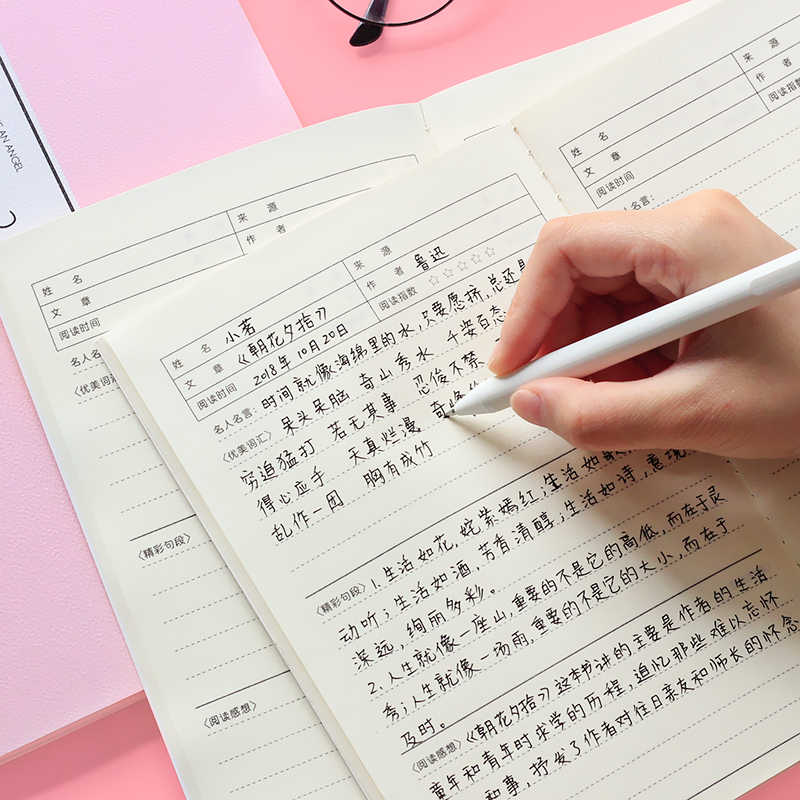 AN ANGEL
姓 名
文 章
阅读时间
来 源
作 者
名人名言:
〈优美词汇〉
〈精彩句段〉
〈阅读感想〉
姓 名 小若
文 章 《朝花夕拾》
阅读时间 2018年10月20日
来 源
作 者 鲁迅
阅读指数 ☆☆☆☆☆
名人名言: 时间就像海绵里的水,只要愿挤,总还是
〈优美词汇〉 呆头呆脑 奇山秀水 千姿百态
穷追猛打 若无其事 忍俊不禁
得心应手 天真烂漫 奇峰
乱作一团 胸有成竹
〈精彩句段〉 1.生活如花,姹紫嫣红;生活如歌
动听;生活如酒,芳香清醇;生活如诗,意境
深远,绚丽多彩。
2.人生就像一座山,重要的不是它的高低,而在于灵
秀;人生就像一场雨,重要的不是它的大小,而在于
及时。
〈阅读感想〉 《朝花夕拾》这本书讲的主要是作者的生活
童年和青年时求学的历程,追忆那些难以忘怀
和事,抒发了作者对往日亲友和师长的怀念
姓 名
文 章
阅读时间
来 源
作 者
阅读指数
名人名言: